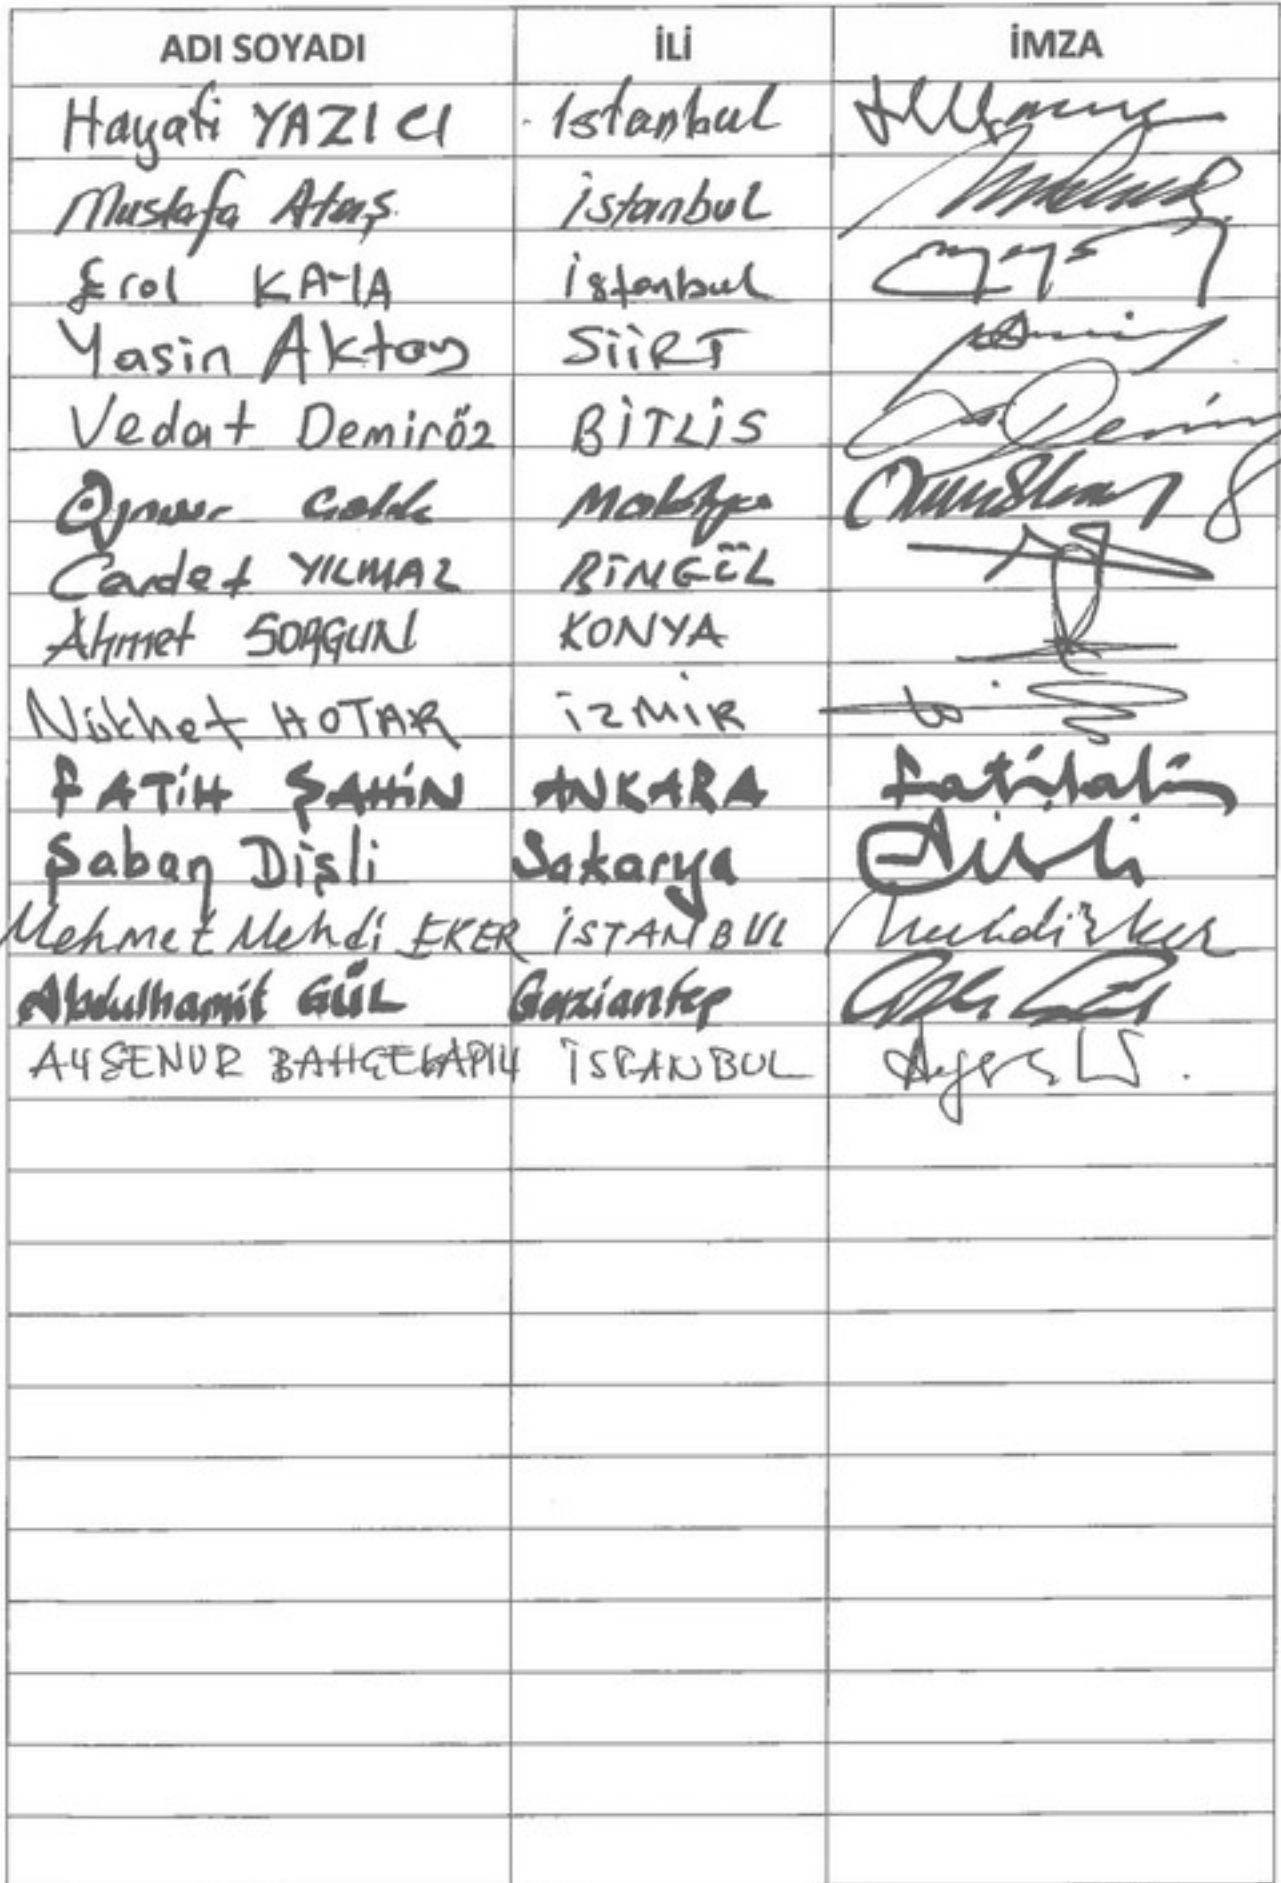 ADI SOYADI İLİ İMZA
Hayati YAZICI Istanbul
Mustafa Ataş İstanbul
Erol KAYA İstanbul
Yasin Aktay SİİRT
Vedat Demiröz BİTLİS Demir
Öznur Çalık Malatya
Cevdet YILMAZ BİNGÖL
Ahmet SORGUN KONYA
Nükhet HOTAR İZMİR
FATİH ŞAHİN ANKARA
Şaban Dişli Sakarya Dişli
Mehmet Mehdi EKER İSTANBUL Mehdi Eker
Abdulhamit GÜL Gaziantep
AYŞENUR BAHÇEKAPILI İSTANBUL